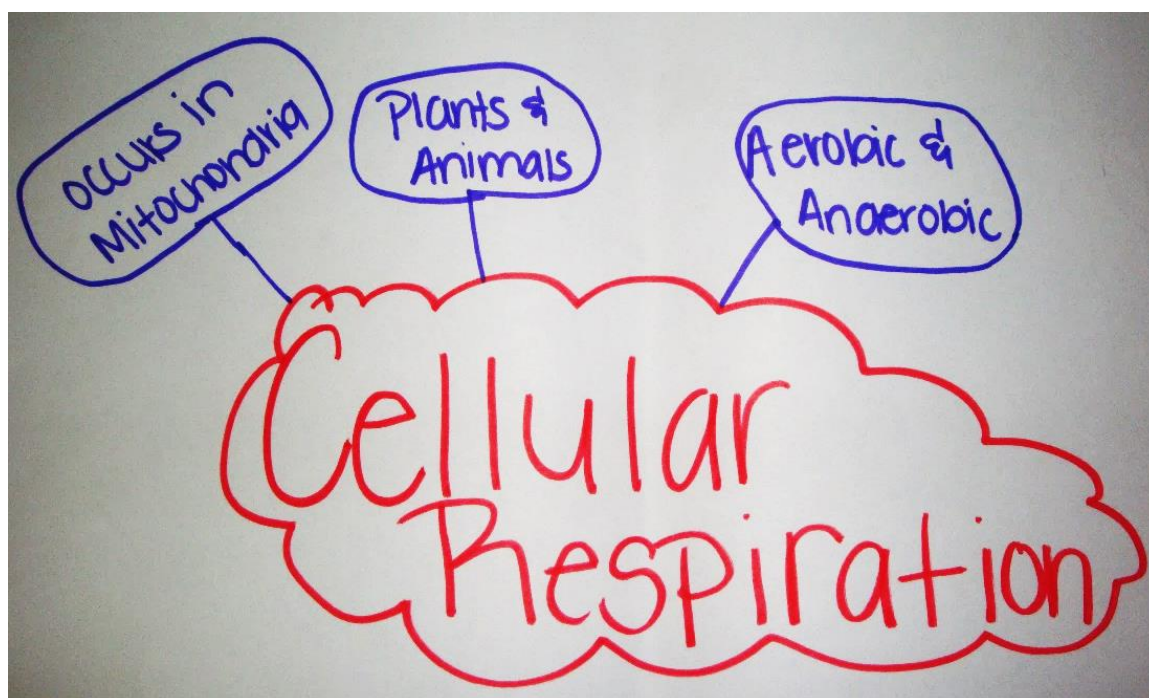 occurs in
Mitochondria
Plants &
Animals
Aerobic &
Anaerobic
Cellular
Respiration